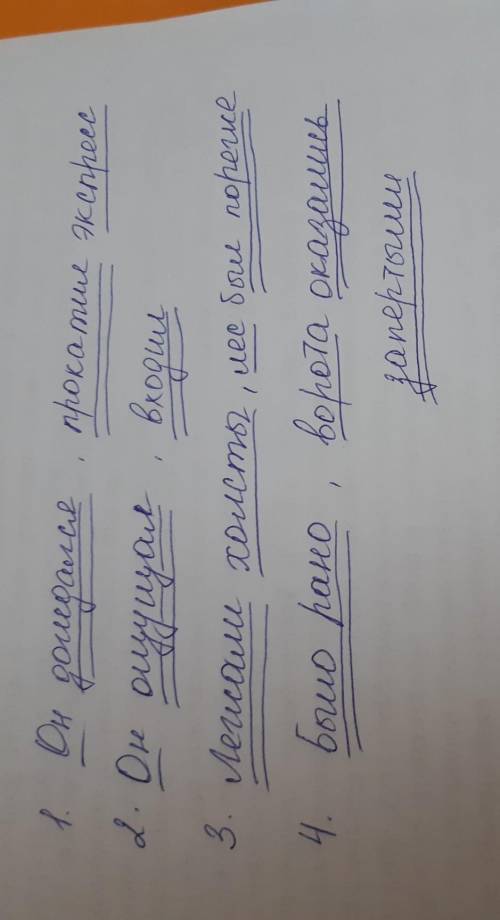 1. Он дождался, прокатил экспресс
2. Он ощущал, входил
3. Лежали холсты, лес был пореже
4. Было рано, ворота оказались
запертыми